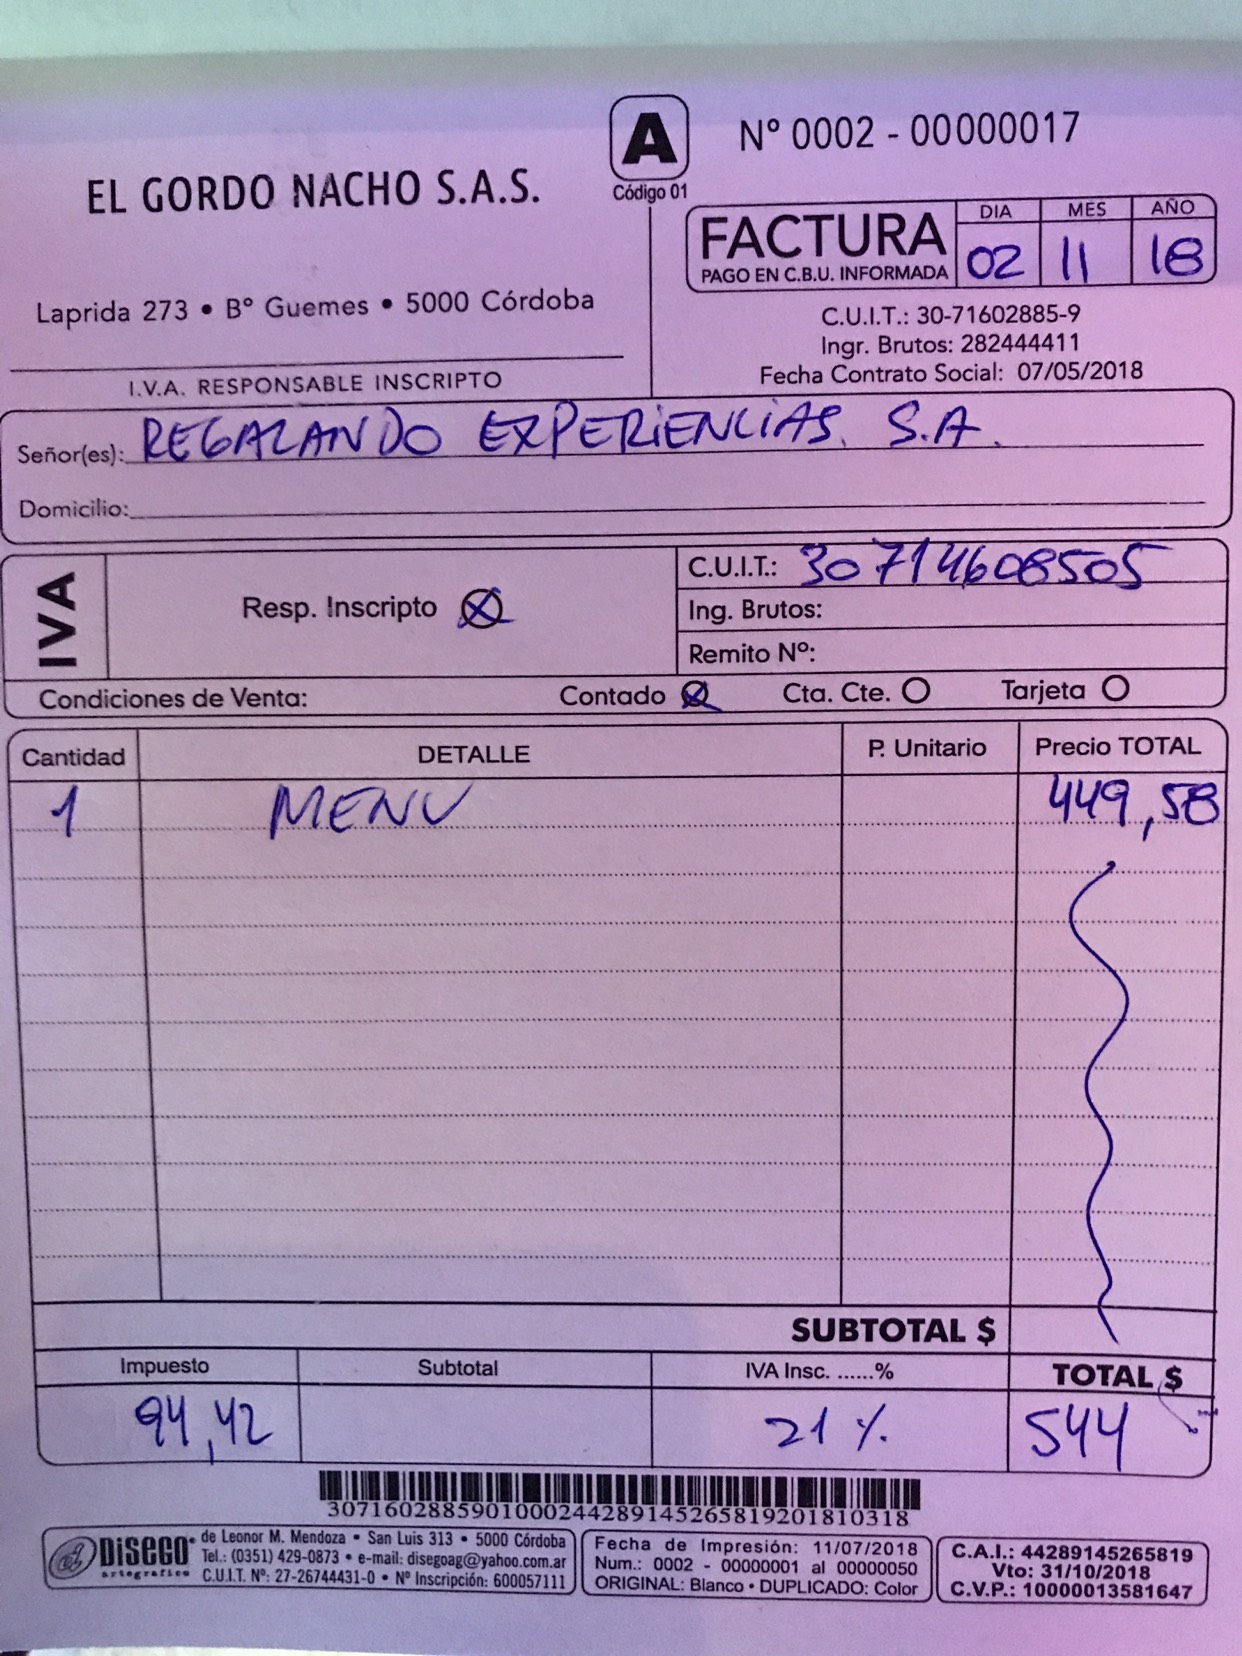 A
Código 01
Nº 0002 - 00000017
EL GORDO NACHO S.A.S.
Laprida 273 • Bº Guemes • 5000 Córdoba
I.V.A. RESPONSABLE INSCRIPTO
FACTURA
PAGO EN C.B.U. INFORMADA
DIA MES AÑO
02 11 18
C.U.I.T.: 30-71602885-9
Ingr. Brutos: 282444411
Fecha Contrato Social: 07/05/2018
Señor(es): REGALANDO EXPERIENCIAS. S.A.
Domicilio:
IVA
Resp. Inscripto
C.U.I.T.: 30714608505
Ing. Brutos:
Remito Nº:
Condiciones de Venta: Contado Cta. Cte. Tarjeta
Cantidad DETALLE P. Unitario Precio TOTAL
1 MENU 449,58
SUBTOTAL $
Impuesto Subtotal IVA Insc. ......% TOTAL $
94,42 21 % 544
307160288590100024428914526581920181031​8
DiSEGO artegrafico
de Leonor M. Mendoza • San Luis 313 • 5000 Córdoba
Tel.: (0351) 429-0873 • e-mail: disegoag@yahoo.com.ar
C.U.I.T. Nº: 27-26744431-0 • Nº Inscripción: 600057111
Fecha de Impresión: 11/07/2018
Num.: 0002 - 00000001 al 00000050
ORIGINAL: Blanco • DUPLICADO: Color
C.A.I.: 44289145265819
Vto: 31/10/2018
C.V.P.: 10000013581647